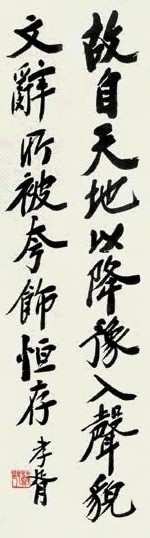 故自天地以降豫入聲貌
文辭所被夸飾恒存孝胥